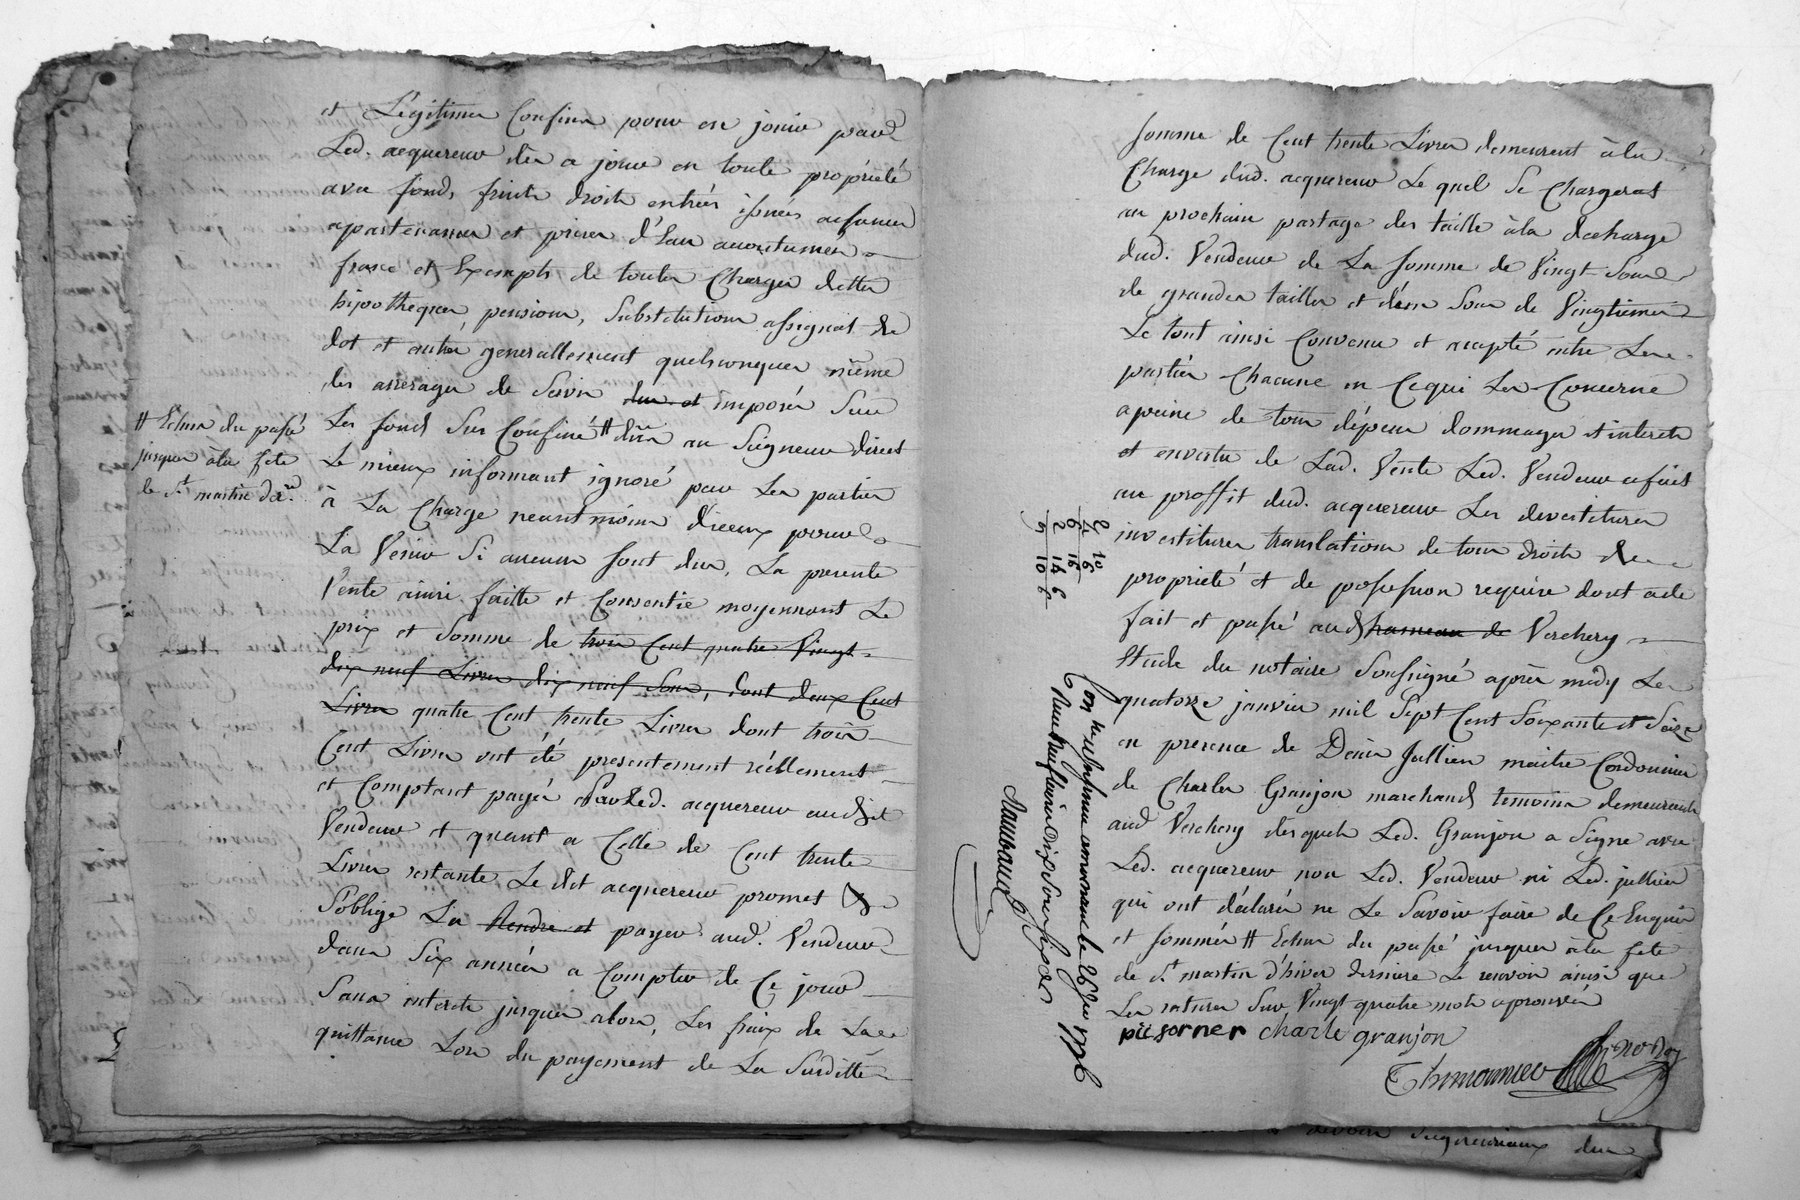 et Légitimes Confins pour en jouir par
Led. acquereur dès a jour en toute propriété
avec fonds, fruits droits entrées issues aisances
apartenances et prises d'Eau acoutumés
franc et Exempts de toutes Charges dettes
hipotheques, pensions, Substitutions assignat de
dot et autres generallement quelconques même
des arrerages de Servis dus et imposés Sur
Les fonds Sus Confiné # dûs au Seigneur direct
# Echus du passé
jusques à la fete
de St martin der.re
Le mieux informant ignoré par Les parties
à La Charge neantmoins d'iceux pour
La Venir Si aucuns sont dus, La presente
Vente ainsi faitte et Consentie moyennant Le
prix et Somme de trois Cent quatre Vingt
dix neuf Livres dix neuf Sous, dont deux Cent
Livres quatre Cent trente Livres dont trois
Cent Livres ont été presentement réellement
et Comptant payés Par Led. acquereur audit
Vendeur et quant a Celle de Cent trente
Livres restante Le dit acquereur promet &
S'oblige La Rendre et payer aud. Vendeur
dans Six années a Compter de Ce jour
Sans interets jusques alors, Les fraix de La
quittance Lors du payement de La Susditte
Somme de Cent trente Livres demeurent à la
Charge dud. acquereur Le quel Se Chargerat
au prochain partage des taille à la decharge
dud. Vendeur de La Somme de Vingt Sous
de grandes tailles et d'un Sous de Vingtiemes
Le tout ainsi Convenu et accepté entre Les
parties Chacune en Cequi Les Concerne
apeine de tous dépens dommages et interets
et envertu de Lad. Vente Led. Vendeur afait
au proffit dud. acquereur Les devestitures
investitures translations de tous droits de
propriété et de possession requise dont acte
fait et passé aud hameau de Verchery
Etude du notaire Soussigné après midy Le
quatorze janvier mil Sept Cent Soixante et Seize
en presence de Denis Jullien maitre Cordonnier
de Charles Granjon marchand temoins demeurants
aud Verchery desquels Led. Granjon a Signé avec
Led. acquereur non Led. Vendeur ni Led. jullien
qui ont déclaré ne Le Savoir faire de Ce Enquis
et sommés # Echus du passé jusques à la fete
de St martin d'hiver derniere Le renvoi ainsi que
Les ratures Sur Vingt quatre mots aprouvés
pie sorner charle granjon
Thimonnier
2 10
4 6
6 16
2 14 6
9 10 6